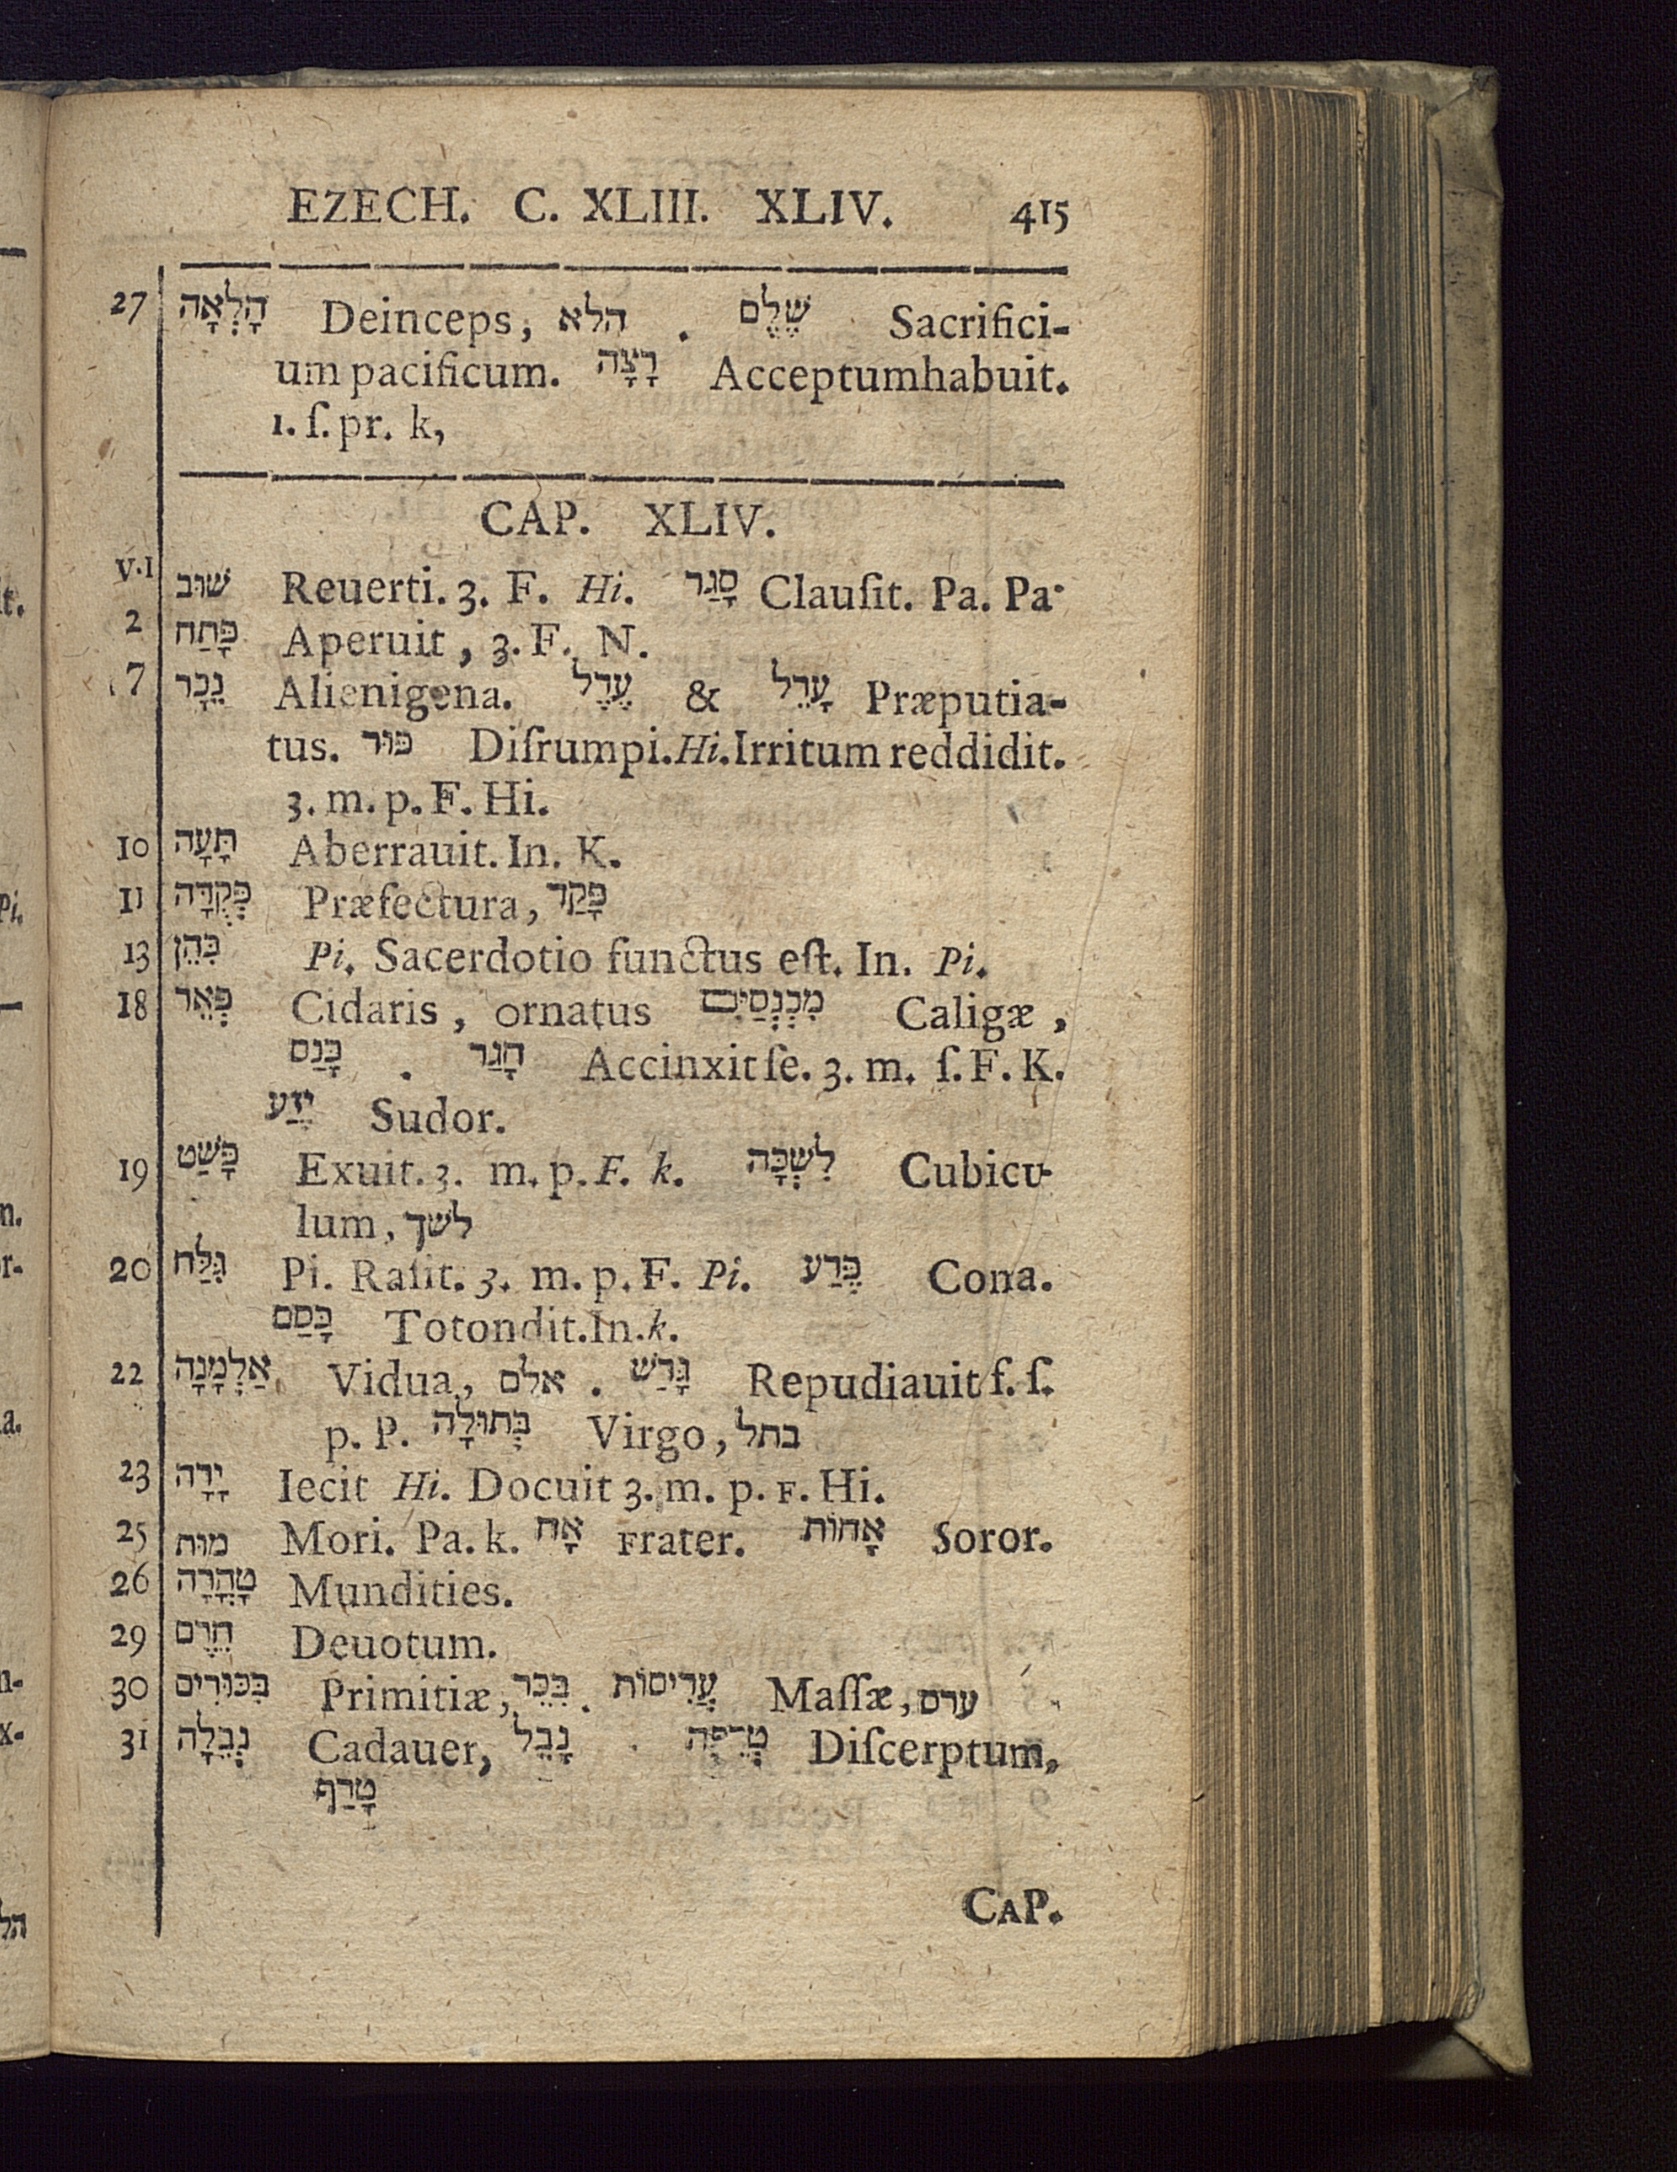 EZECH. C. XLIII. XLIV. 415
27 הָלְאָה Deinceps, הלא . שֶׁלֶם Sacrifici-
um pacificum. רָצָה Acceptumhabuit.
1. ſ. pr. k,
CAP. XLIV.
V.1 שׁוּב Reuerti. 3. F. Hi. סָגַר Clauſit. Pa. Pa.
2 פָּתַח Aperuit, 3. F. N.
7 נֵכָר Alienigena. עֶרֶל & עָרֵל Præputia-
tus. פּוּר Diſrumpi. Hi. Irritum reddidit.
3. m. p. F. Hi.
10 תָּעָה Aberrauit. In. K.
11 פְּקֻדָּה Præfectura, פָּקַד
13 כִּהֵן Pi. Sacerdotio functus eſt. In. Pi.
18 פְּאֵר Cidaris, ornatus מִכְנְסַיִם Caligæ,
כָּנַס . חָגַר Accinxit ſe. 3. m. ſ. F. K.
יֶזַע Sudor.
19 פָּשַׁט Exuit. 3. m. p. F. k. לִשְׁכָּה Cubicu-
lum, לשך
20 גִּלַּח Pi. Raſit. 3. m. p. F. Pi. פֶּרַע Coma.
כָּסַם Totondit. In. k.
22 אַלְמָנָה Vidua, אלם . גָּרַשׁ Repudiauit f. ſ.
p. P. בְּתוּלָה Virgo, בתל
23 יָרָה Iecit Hi. Docuit 3. m. p. F. Hi.
25 מוּת Mori. Pa. k. אָח Frater. אָחוֹת Soror.
26 טָהֳרָה Mundities.
29 חֵרֶם Deuotum.
30 בִּכּוּרִים Primitiæ, בִּכֵּר . עֲרִיסוֹת Maſſæ, ערס
31 נְבֵלָה Cadauer, נָבֵל . טְרֵפָה Diſcerptum,
טָרַף
CAP.